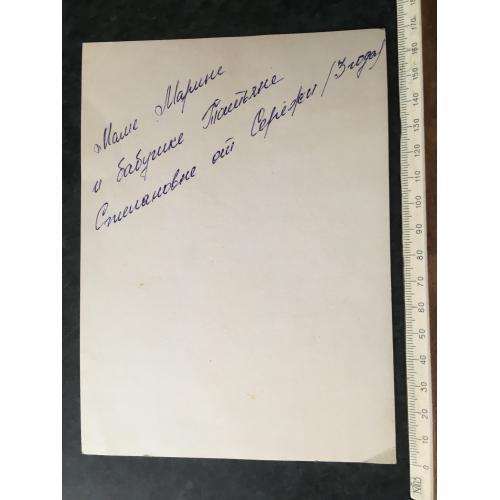 Маме Марине
и бабушке Татьяне
Степановне от Сережи (3 года)
170
160
150
140
130
120
110
100
90
80
70
60
50
40
30
20
10
0